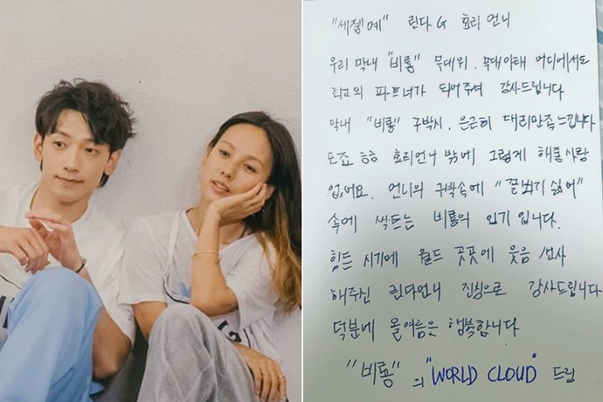 "세젤예" 린다G 효리언니
우리 막내 "비룡" 무대위. 무대아래 어디에서도
최고의 파트너가 되어주셔 감사드립니다
막내 "비룡" 구박시, 은근히 대리만족느낍니다
도죠 ㅎㅎ 효리언니 밖에 그렇게 해줄사람
없어요. 언니의 구박속에 "꼴뵈기 싫어"
속에 싹트는 비룡의 인기 입니다.
힘든 시기에 월드 곳곳에 웃음 선사
해주신 린다언니 진심으로 감사드립니다
덕분에 올여름은 행복합니다
"비룡" 의 "WORLD CLOUD" 드림